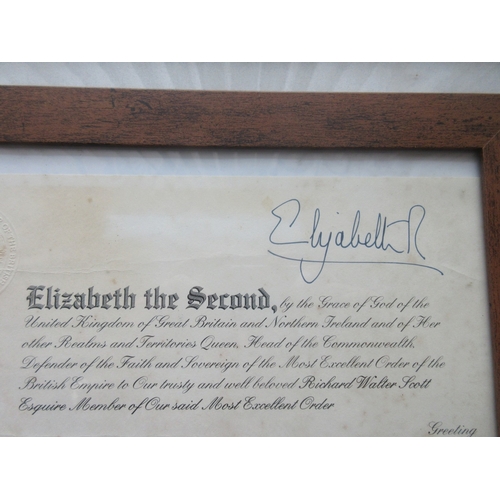 Elizabeth R
Elizabeth the Second, by the Grace of God of the
United Kingdom of Great Britain and Northern Ireland and of Her
other Realms and Territories Queen, Head of the Commonwealth,
Defender of the Faith and Sovereign of the Most Excellent Order of the
British Empire to Our trusty and well beloved Richard Walter Scott
Esquire Member of Our said Most Excellent Order
Greeting